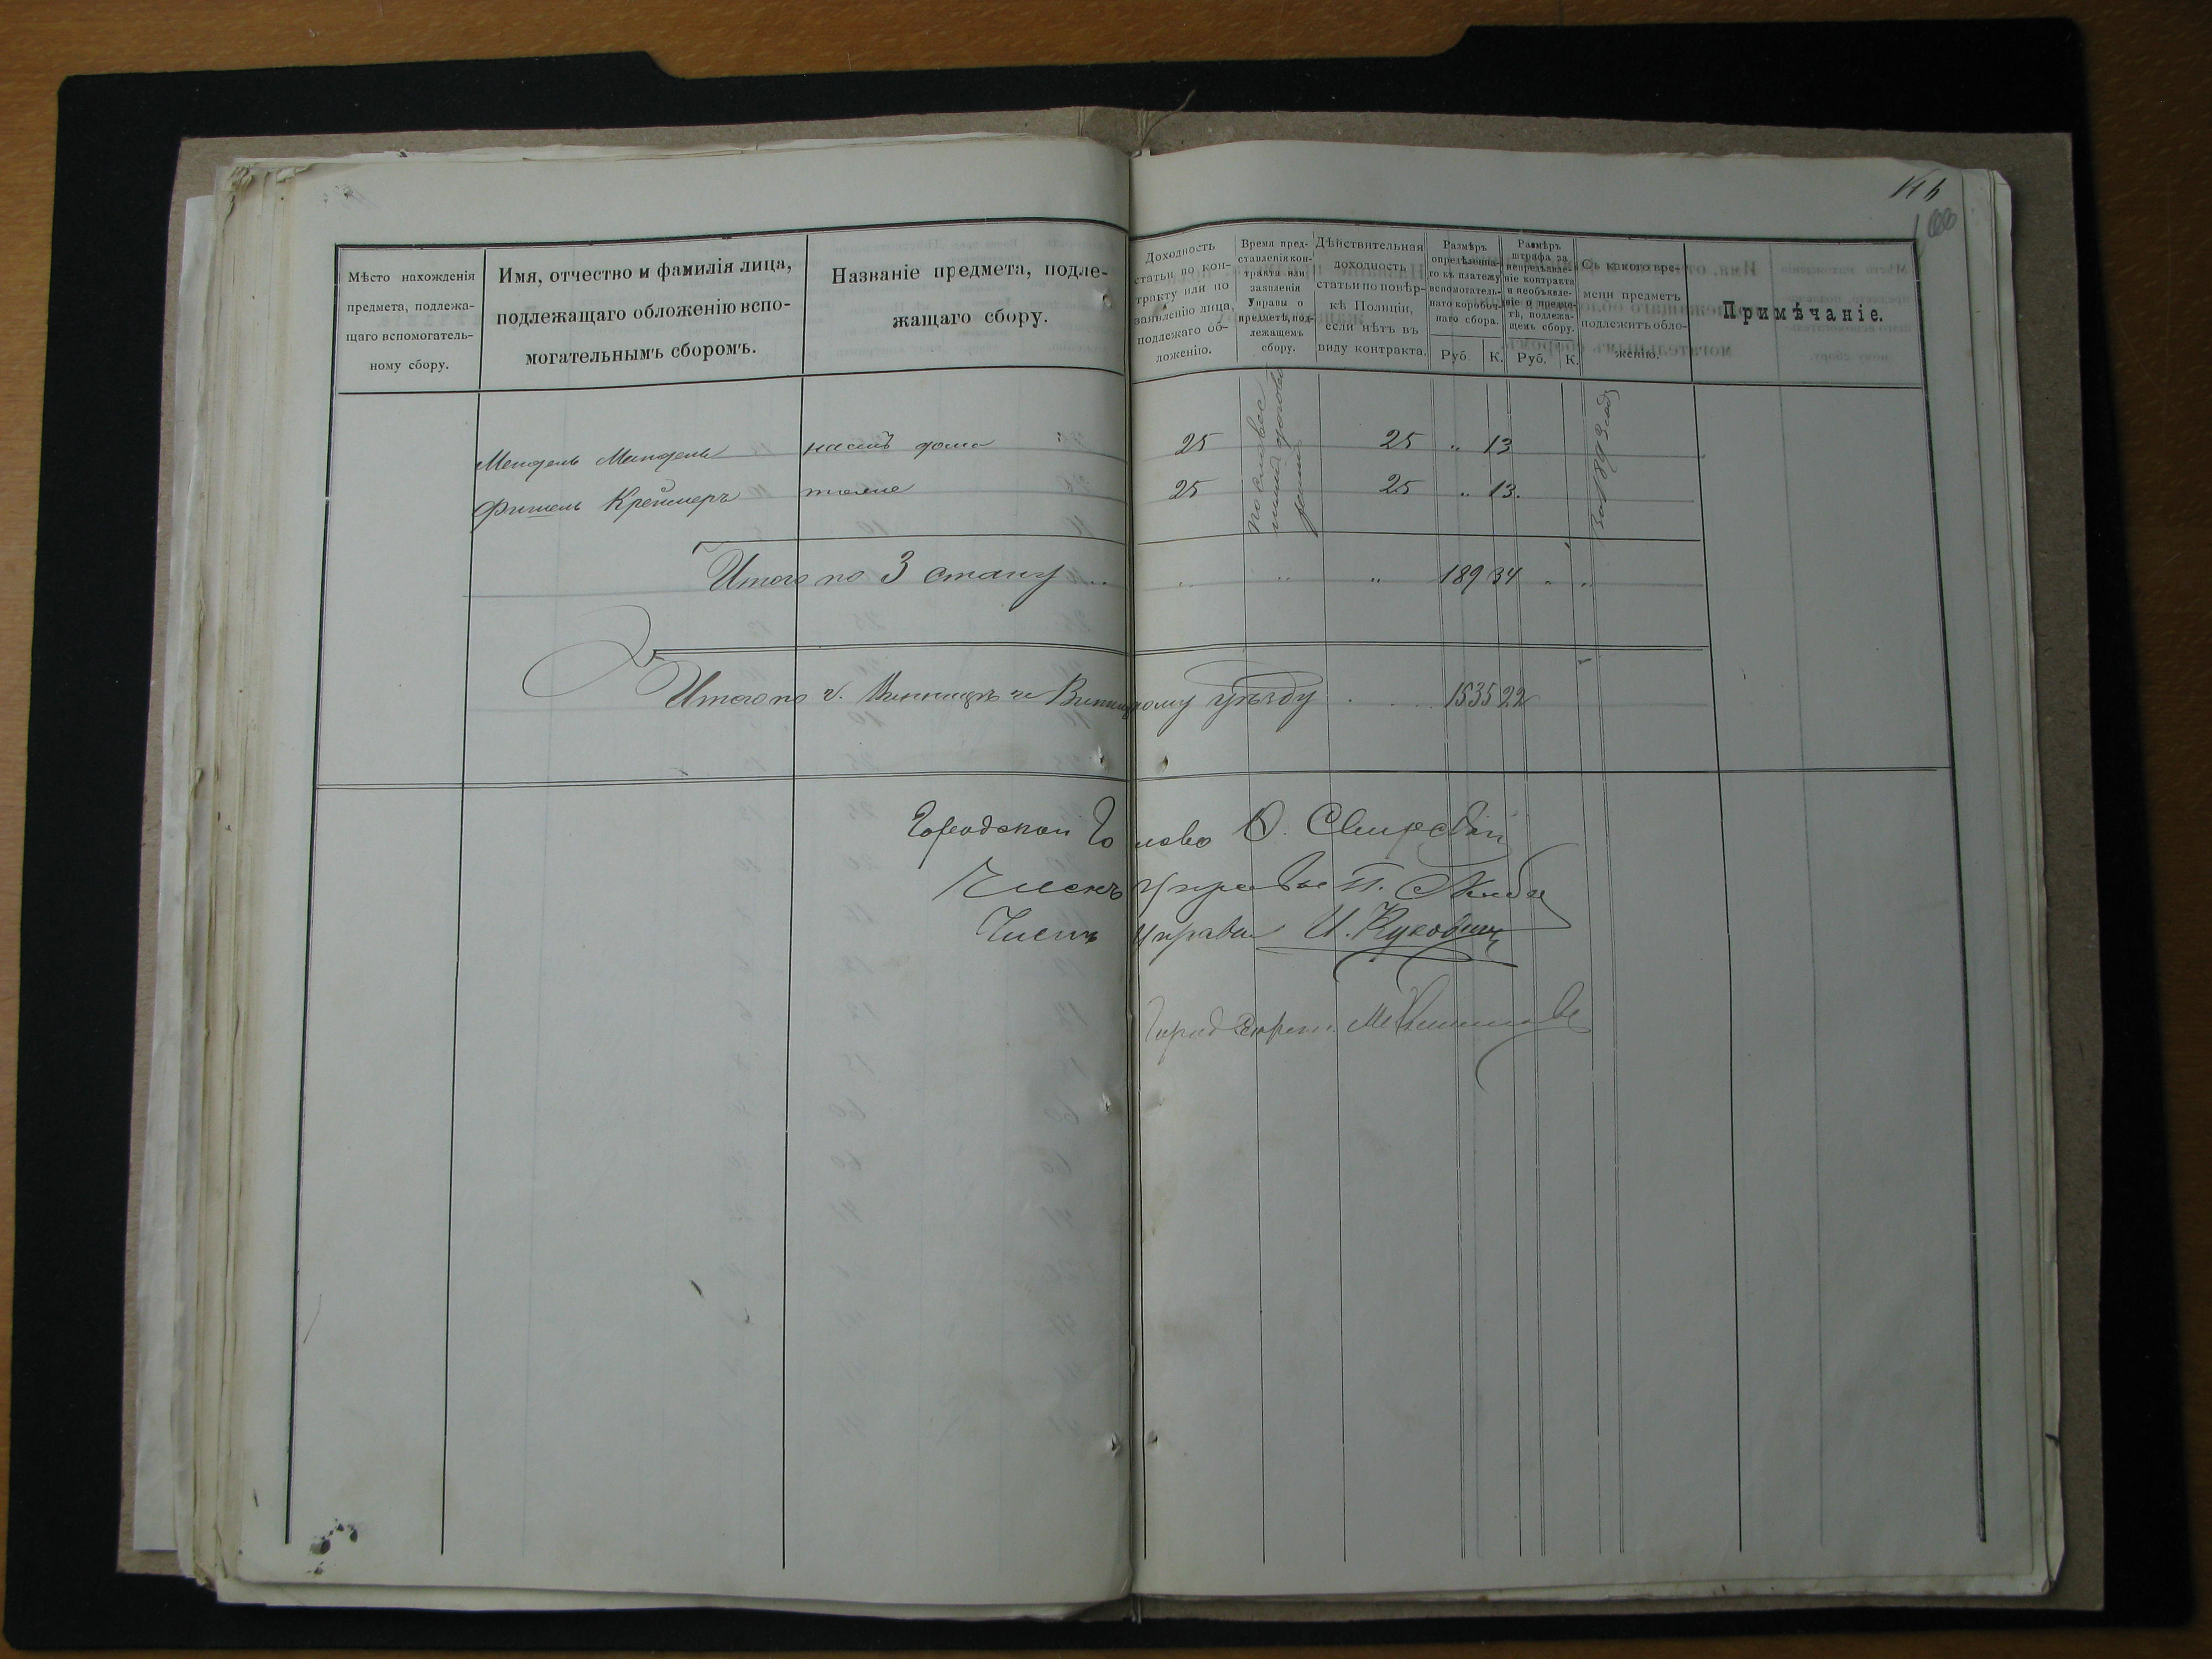 Мѣсто нахожденія
предмета, подлежа-
щаго вспомогатель-
ному сбору.
Имя, отчество и фамилія лица,
подлежащаго обложенію вспо-
могательнымъ сборомъ.
Названіе предмета, подле-
жащаго сбору.
Доходность
статьи по кон-
тракту или по
заявленію лица,
подлежаго об-
ложенію.
Время пред-
ставленія кон-
тракта или
заявленія
Управы о
предметѣ, под-
лежащемъ
сбору.
Дѣйствительная
доходность
статьи по повѣр-
кѣ Полиціи,
если нѣтъ въ
виду контракта.
Размѣръ
опредѣленна-
го къ платежу
вспомогатель-
наго коробоч-
наго сбора.
Руб. К.
Размѣръ
штрафа за
непредъявле-
ніе контракта
и необъявле-
ніе о предме-
тѣ, подлежа-
щемъ сбору.
Руб. К.
Съ какого вре-
мени предметъ
подлежитъ обло-
женію.
Примѣчаніе.
Мендель Мандель наемъ дома 25 25 „ 13
Фишель Креймеръ тоже 25 25 „ 13.
За 1893 годъ
Итого по 3 стану „ „ „ 189 34 „ „
Итого по г. Винницѣ и Винницкому уѣзду 1535 22
Городской Голова В. Свирскій
Членъ Управы П.
Членъ Управы И. Кукович
Город Секрет.